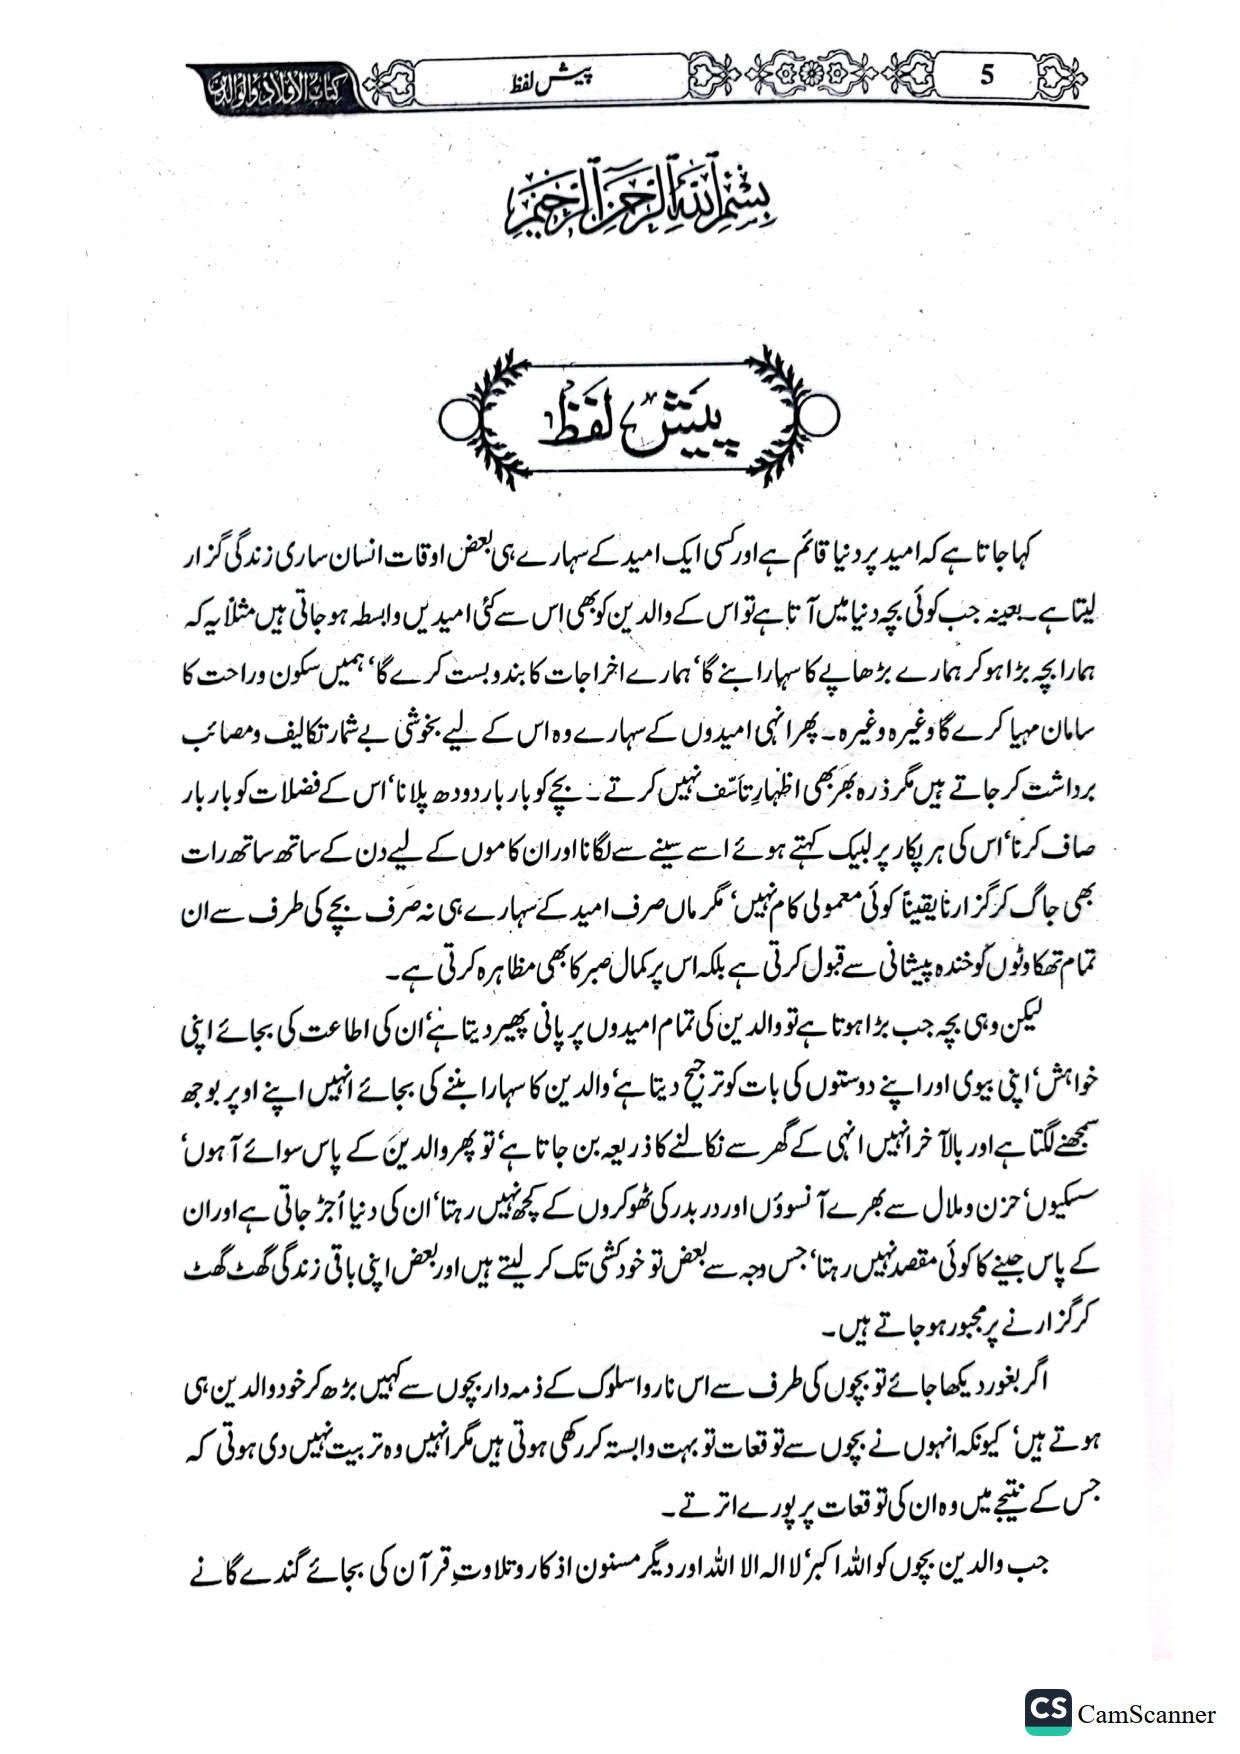 5
پیش لفظ
کتاب الاولاد والوالدین
بسم اللہ الرحمن الرحیم
پیش لفظ
کہا جاتا ہے کہ امید پر دنیا قائم ہے اور کسی ایک امید کے سہارے ہی بعض اوقات انسان ساری زندگی گزار
لیتا ہے۔ بعینہ جب کوئی بچہ دنیا میں آتا ہے تو اس کے والدین کو بھی اِس سے کئی امیدیں وابطہ ہو جاتی ہیں مثلاً یہ کہ
ہمارا بچہ بڑا ہو کر ہمارے بڑھاپے کا سہارا بنے گا‘ ہمارے اخراجات کا بندوبست کرے گا‘ ہمیں سکون و راحت کا
سامان مہیا کرے گا وغیرہ وغیرہ۔ پھر انہی امیدوں کے سہارے وہ اس کے لیے بخوشی بے شمار تکالیف و مصائب
برداشت کر جاتے ہیں مگر ذرہ بھر بھی اظہارِ تأسّف نہیں کرتے۔ بچے کو بار بار دودھ پلانا‘ اس کے فضلات کو بار بار
صاف کرنا‘ اس کی ہر پکار پر لبیک کہتے ہوئے اسے سینے سے لگانا اور ان کاموں کے لیے دن کے ساتھ ساتھ رات
بھی جاگ کر گزارنا یقیناً کوئی معمولی کام نہیں‘ مگر ماں صرف امید کے سہارے ہی نہ صرف بچے کی طرف سے ان
تمام تھکاوٹوں کو خندہ پیشانی سے قبول کرتی ہے بلکہ اس پر کمال صبر کا بھی مظاہرہ کرتی ہے۔
لیکن وہی بچہ جب بڑا ہوتا ہے تو والدین کی تمام امیدوں پر پانی پھیر دیتا ہے‘ ان کی اطاعت کی بجائے اپنی
خواہش‘ اپنی بیوی اور اپنے دوستوں کی بات کو ترجیح دیتا ہے‘ والدین کا سہارا بننے کی بجائے انہیں اپنے اوپر بوجھ
سمجھنے لگتا ہے اور بالآخر انہیں انہی کے گھر سے نکالنے کا ذریعہ بن جاتا ہے‘ تو پھر والدین کے پاس سوائے آہوں‘
سسکیوں‘ حزن و ملال سے بھرے آنسوؤں اور در بدر کی ٹھوکروں کے کچھ نہیں رہتا‘ ان کی دنیا اُجڑ جاتی ہے اور ان
کے پاس جینے کا کوئی مقصد نہیں رہتا‘ جس وجہ سے بعض تو خودکشی تک کر لیتے ہیں اور بعض اپنی باقی زندگی گھٹ گھٹ
کر گزارنے پر مجبور ہو جاتے ہیں۔
اگر بغور دیکھا جائے تو بچوں کی طرف سے اس ناروا سلوک کے ذمہ دار بچوں سے کہیں بڑھ کر خود والدین ہی
ہوتے ہیں‘ کیونکہ انہوں نے بچوں سے توقعات تو بہت وابستہ کر رکھی ہوتی ہیں مگر انہیں وہ تربیت نہیں دی ہوتی کہ
جس کے نتیجے میں وہ ان کی توقعات پر پورے اترتے۔
جب والدین بچوں کو اللہ اکبر‘ لا الہ الا اللہ اور دیگر مسنون اذکار و تلاوتِ قرآن کی بجائے گندے گانے
CS CamScanner